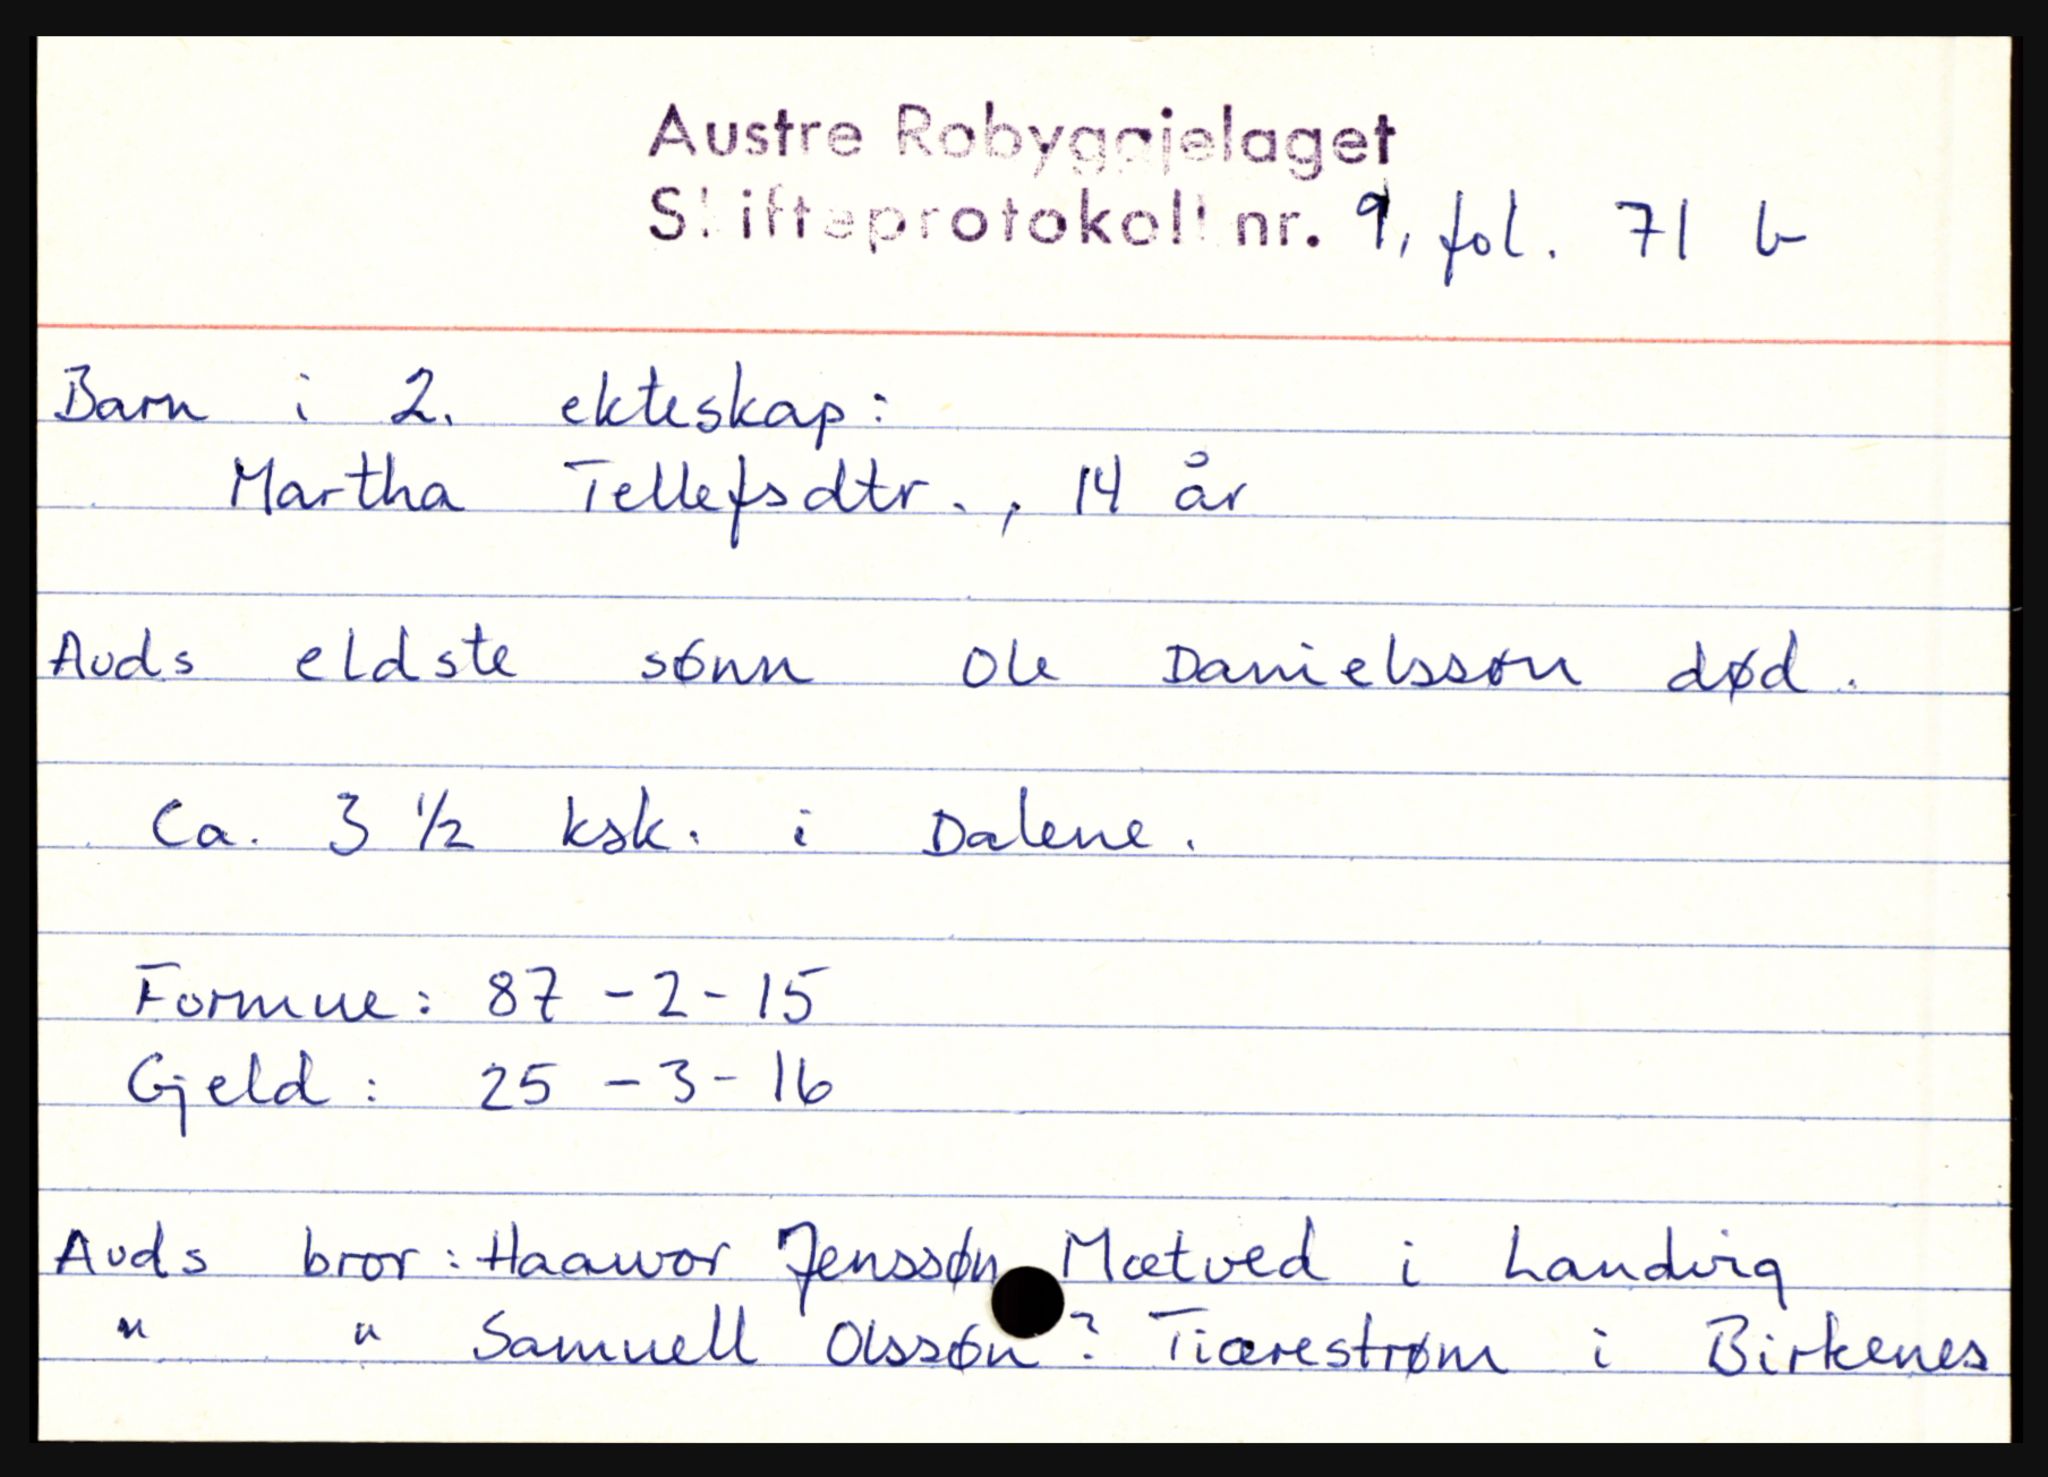 Austre Robyggjelaget
Skifteprotokoll nr. 9, fol. 71 b
Barn i 2. ekteskap:
Martha Tellefsdtr., 14 år
Auds eldste sønn Ole Danielssøn død.
Ca. 3 1/2 ksk. i Dalene.
Formue: 87 - 2 - 15
Gjeld: 25 - 3 - 16
Auds bror: Haawor Jenssøn Mætved i Landvig
" " Samuell Olssøn? Tiærestrøm i Birkenes